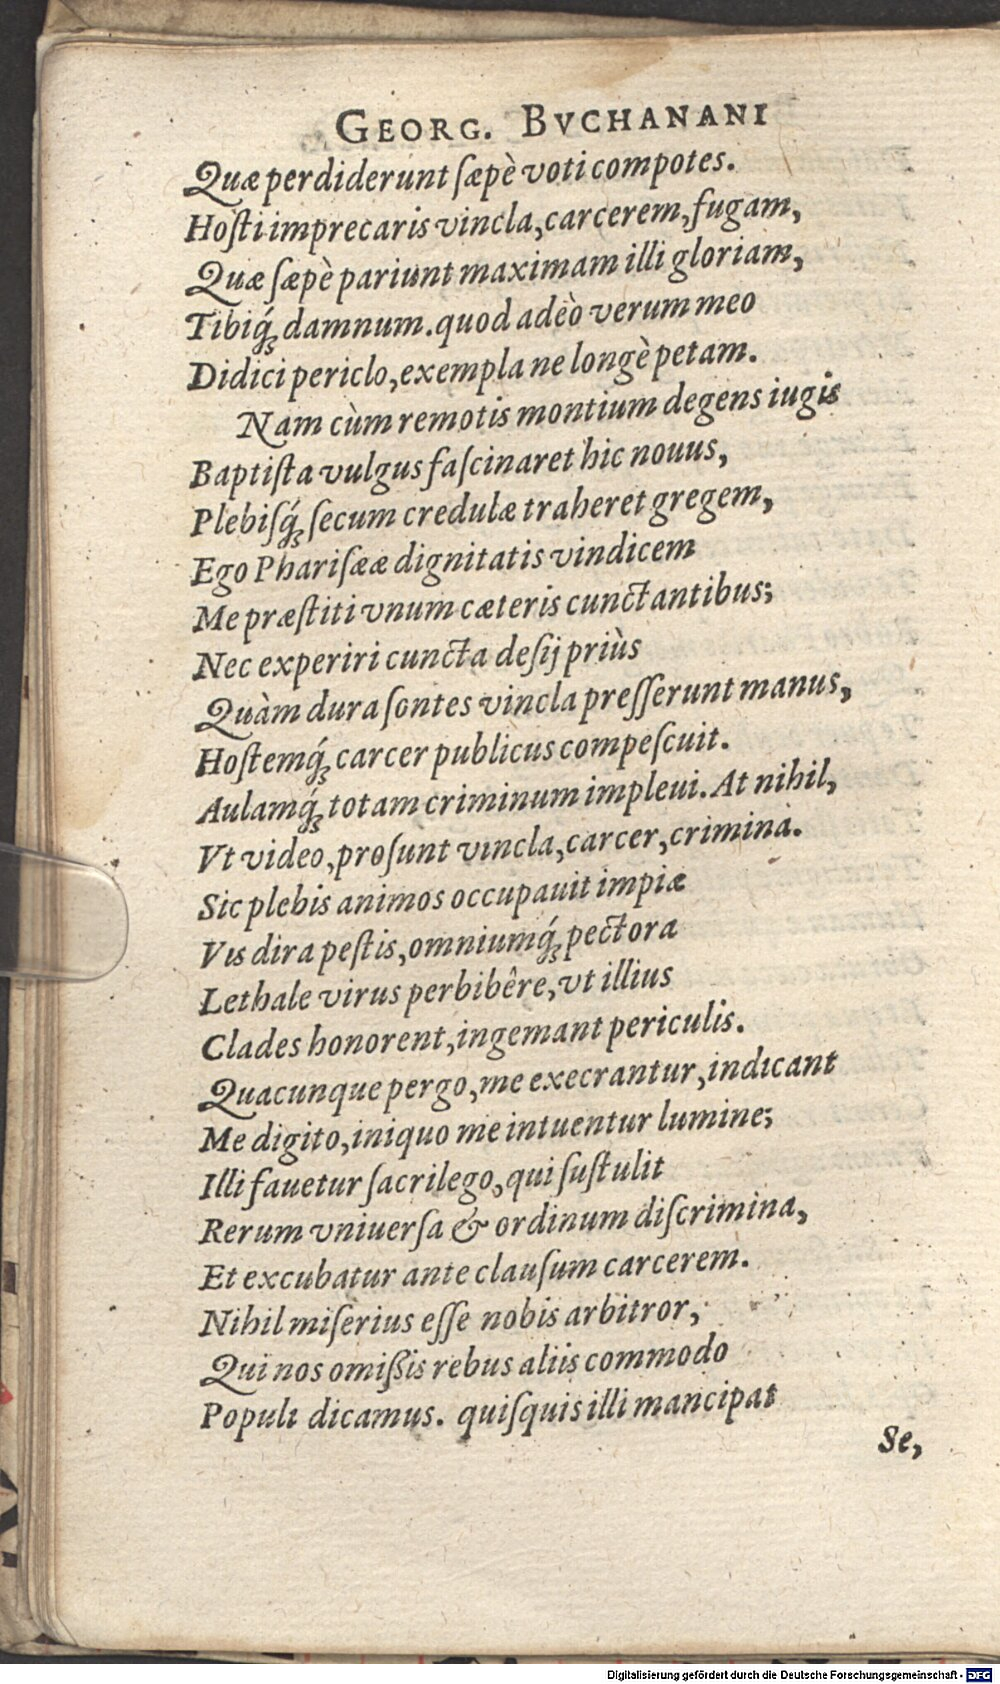 GEORG. BVCHANANI
Quæ perdiderunt sæpè voti compotes.
Hosti imprecaris vincla, carcerem, fugam,
Quæ sæpè pariunt maximam illi gloriam,
Tibiq́; damnum. quod adeò verum meo
Didici periclo, exempla ne longè petam.
Nam cùm remotis montium degens iugis
Baptista vulgus fascinaret hic nouus,
Plebisq́; secum credulæ traheret gregem,
Ego Pharisææ dignitatis vindicem
Me præstiti vnum cæteris cunctantibus;
Nec experiri cuncta desij priùs
Quàm dura sontes vincla presserunt manus,
Hostemq́; carcer publicus compescuit.
Aulamq́; totam criminum impleui. At nihil,
Vt video, prosunt vincla, carcer, crimina.
Sic plebis animos occupauit impiæ
Vis dira pestis, omniumq́; pectora
Lethale virus perbibêre, vt illius
Clades honorent, ingemant periculis.
Quacunque pergo, me execrantur, indicant
Me digito, iniquo me intuentur lumine;
Illi fauetur sacrilego, qui sustulit
Rerum vniuersa & ordinum discrimina,
Et excubatur ante clausum carcerem.
Nihil miserius esse nobis arbitror,
Qui nos omißis rebus aliis commodo
Populi dicamus. quisquis illi mancipat
Se,
Digitalisierung gefördert durch die Deutsche Forschungsgemeinschaft - DFG